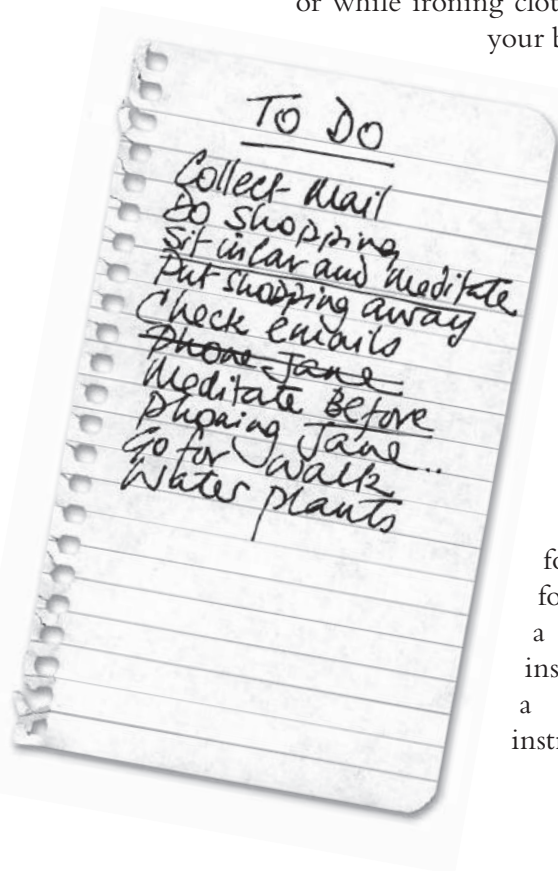 or while ironing clot
your b
TO DO
Collect Mail
Do shopping
Sit in Car and meditate
Put shopping away
Check emails
Phone Jane
Meditate Before
phoning Jane..
Go for walk
Water plants
fo
fo
a
ins
a
instr